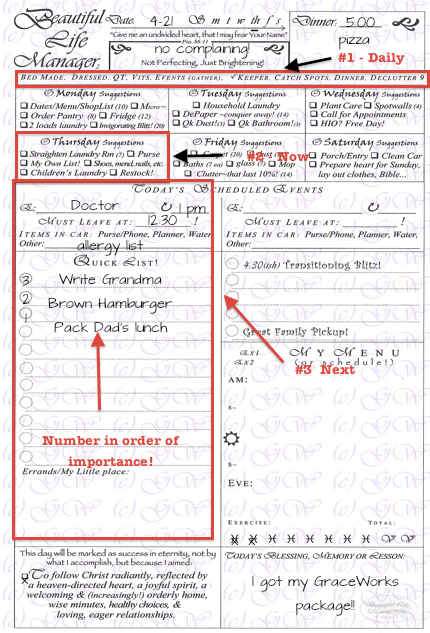 Beautiful Life Manager, Date, 4-21 S m t w th f s Dinner: 5:00
"Give me an undivided heart, that I may fear Your Name" pizza
Psa. 86:11
no complaining!
Not Perfecting, Just Brightening!
#1 - Daily
Bed Made, Dressed, QT, Vits, Events (gather), ✓Keeper, Catch Spots, Dinner, Declutter 9
Monday Suggestions
Dates/Menu/ShopList (10) Micro~
Order Pantry (8) Fridge (12)
2 loads laundry Invigorating Blitz! (20)
Tuesday Suggestions
Household Laundry
DePaper ~conquer away! (14)
Qk Dust!(5) Qk Bathroom(3)
Wednesday Suggestions
Plant Care Spotwalls (4)
Call for Appointments
HIO? Free Day!
Thursday Suggestions
Straighten Laundry Rm (7) Purse
My Own List! Shoes, mend, nails, etc.
Children's Laundry Restock!
#2 Now
Friday Suggestions
Carpet (20)
Baths (7 ea) glass (7) Mop
Clutter~that last 10%! (14)
Saturday Suggestions
Porch/Entry Clean Car
Prepare heart for Sunday,
lay out clothes, Bible...
Today's Scheduled Events
E: Doctor 1 pm
Must Leave at: 12:30 !
Items in car: Purse/Phone, Planner, Water,
Other: allergy list
E:
Must Leave at: !
Items in car: Purse/Phone, Planner, Water
Other:
Quick List!
3 Write Grandma
2 Brown Hamburger
1 Pack Dad's lunch
Number in order of
importance!
Errands/My Little place:
4:30(ish) Transitioning Blitz!
Great Family Pickup!
#3 Next
Ex1 My Menu
Ex2 (or schedule!)
AM:
s~
s~
Eve:
Exercise: Total:
This day will be marked as success in eternity, not by
what I accomplish, but because I aimed:
To follow Christ radiantly, reflected by
a heaven-directed heart, a joyful spirit, a
welcoming & (increasingly!) orderly home,
wise minutes, healthy choices, &
loving, eager relationships.
Today's Blessing, Memory or Lesson:
I got my GraceWorks
package!!